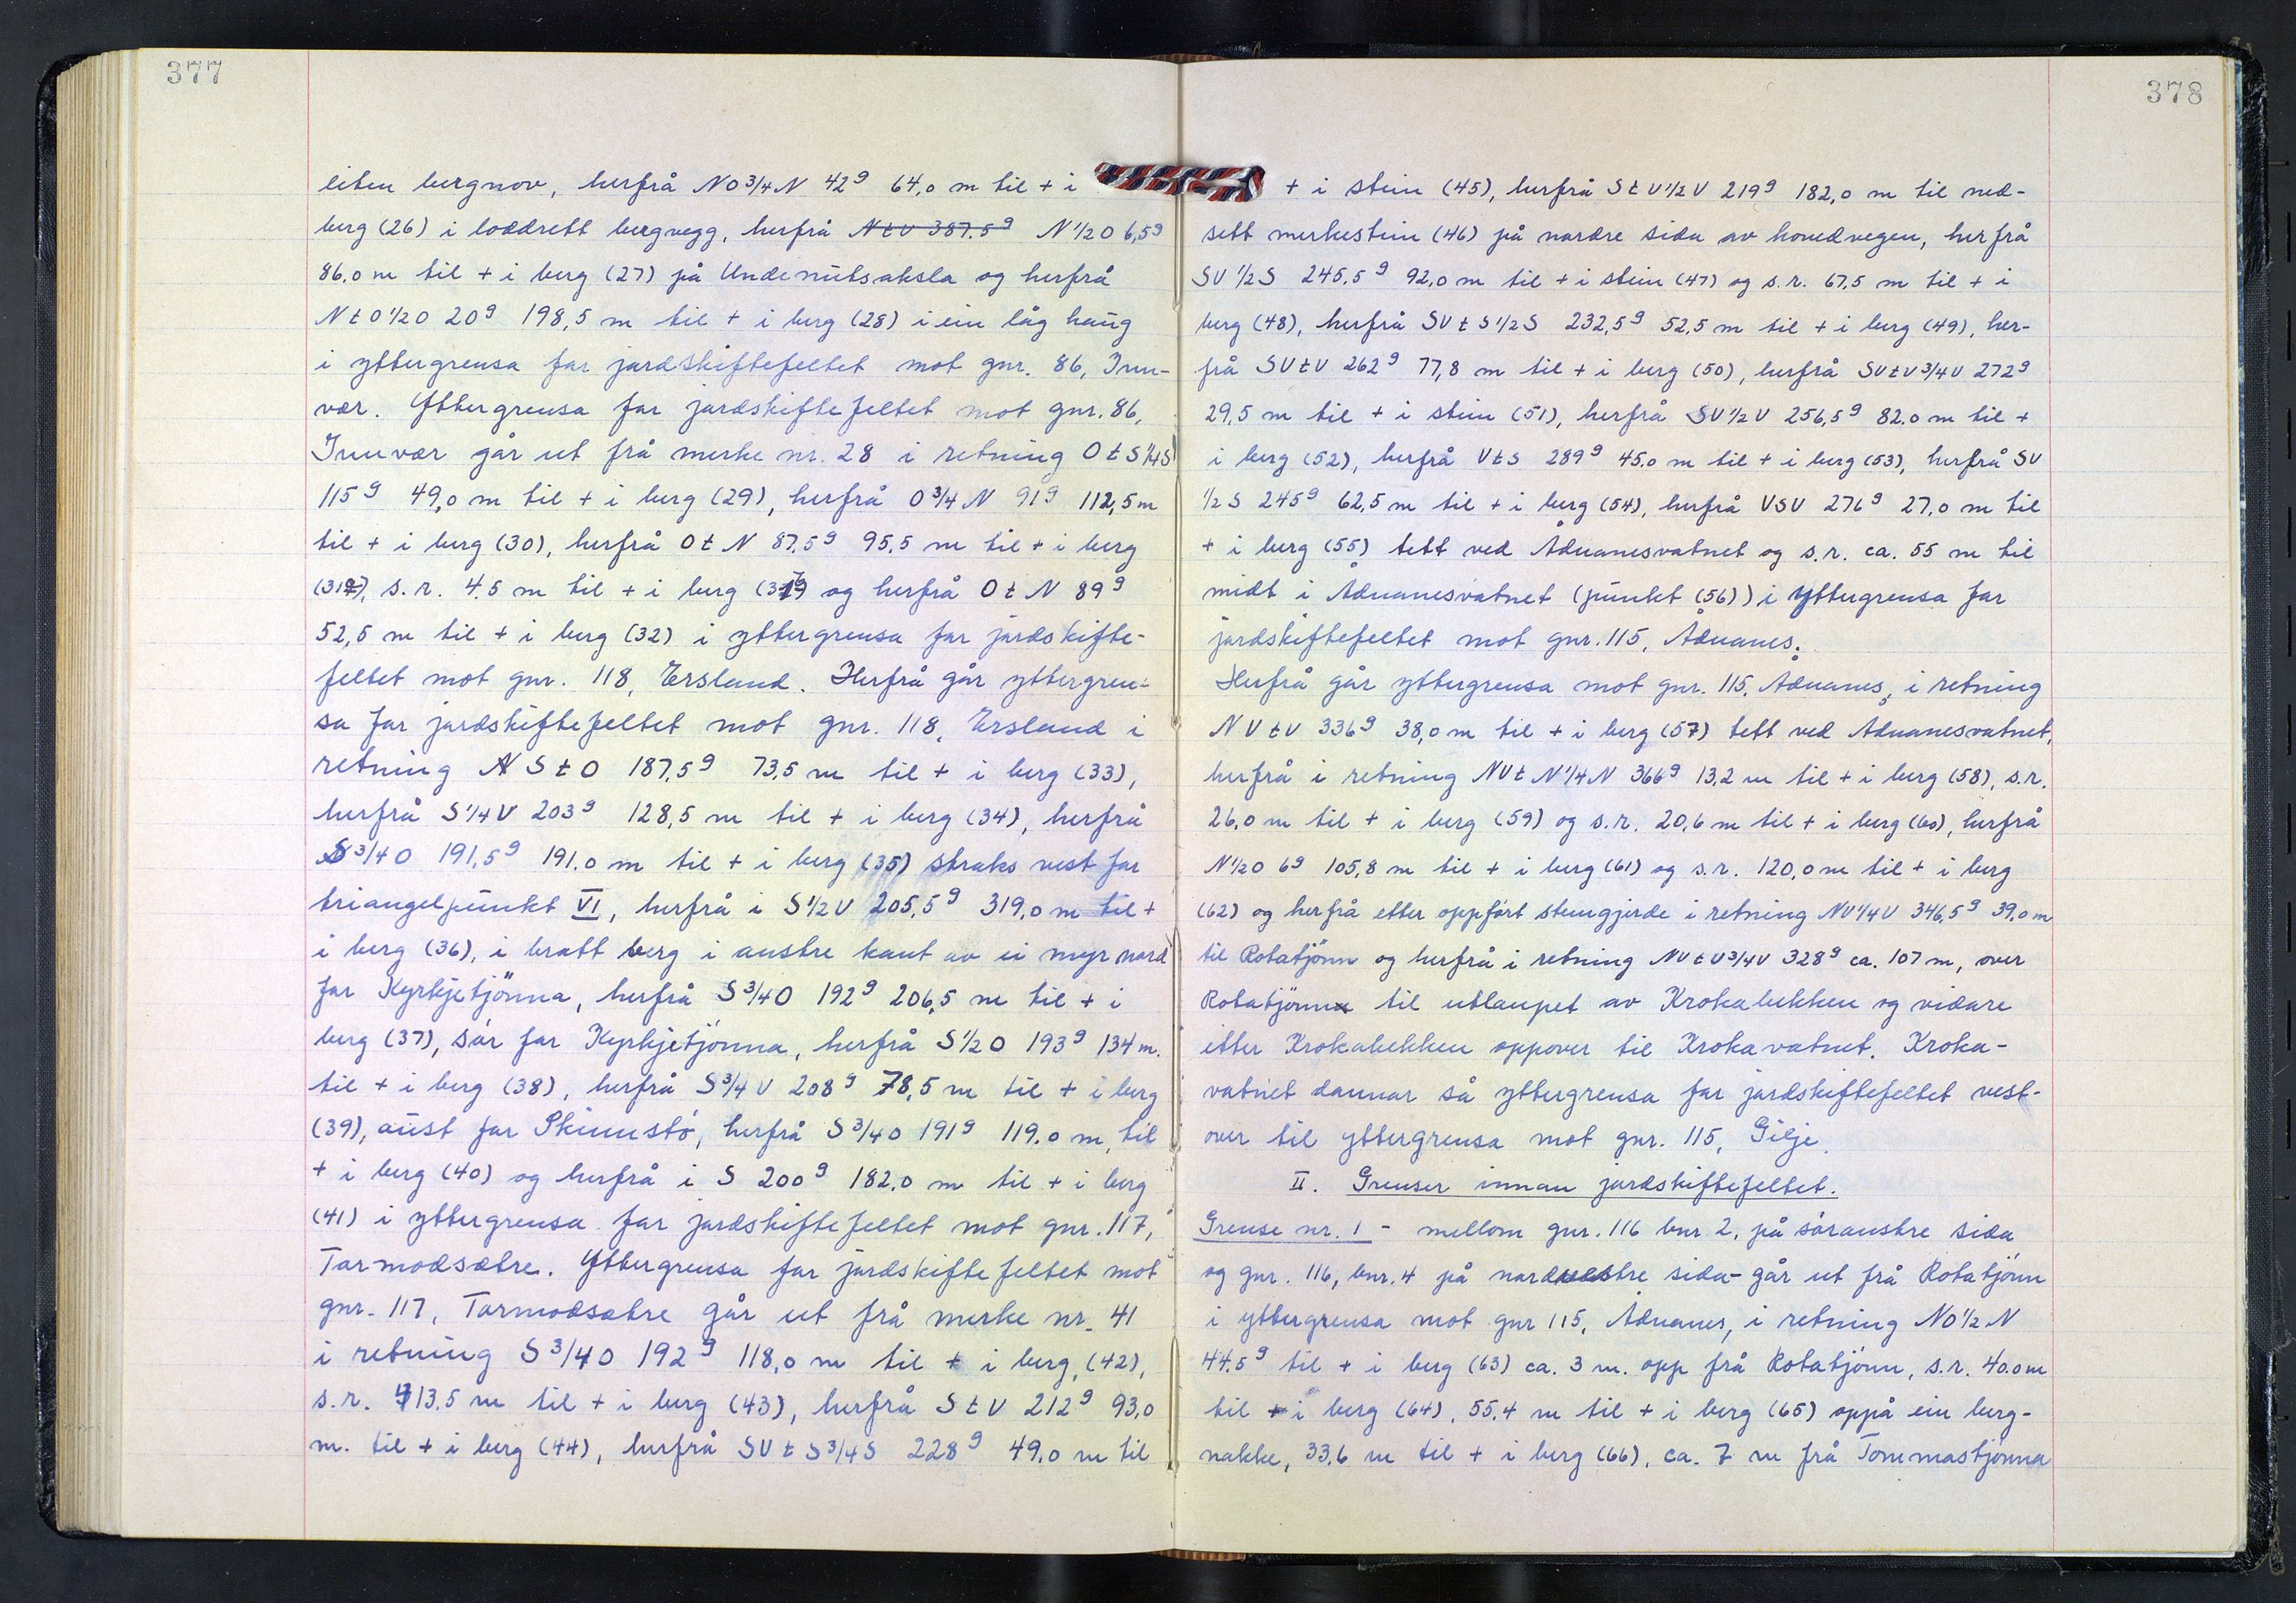 377
liten bergnov, herfrå NO3/4N 42g 64,0 m til + i
berg (26) i loddrett bergvegg, herfrå NtV 387.5g N1/2O 6,5g
86.0 m til + i berg (27) på Undenutsaksla og herfrå
NtO1/2O 20g 198,5 m til + i berg (28) i ein låg haug
i yttergrensa for jordskiftefeltet mot gnr. 86, Inn-
vær. Yttergrensa for jordskiftefeltet mot gnr. 86,
Innvær går ut frå merke nr. 28 i retning OtS1/4S
115g 49,0 m til + i berg (29), herfrå O3/4N 91g 112,5 m
til + i berg (30), herfrå OtN 87.5g 95.5 m til + i berg
s.r. 4.5 m til + i berg og herfrå OtN 89g
52,5 m til + i berg (32) i yttergrensa for jordskifte-
feltet mot gnr. 118, Ersland. Herfrå går yttergren-
sa for jordskiftefeltet mot gnr. 118, Ersland i
retning StO 187,5g 73,5 m til + i berg (33),
herfrå S1/4V 203g 128,5 m til + i berg (34), herfrå
S3/4O 191,5g 191.0 m til + i berg (35) straks vest for
triangelpunkt VI, herfrå i S1/2V 205,5g 319,0 m til +
i berg (36), i bratt berg i austre kant av ei myr nord
for Kyrkjetjönna, herfrå S3/4O 192g 206,5 m til + i
berg (37), sör for Kyrkjetjönna, herfrå S1/2O 193g 134 m.
til + i berg (38), herfrå S3/4V 208g 78,5 m til + i berg
(39), aust for Skinnstö, herfrå S3/4O 191g 119.0 m til
+ i berg (40) og herfrå i S 200g 182.0 m til + i berg
(41) i yttergrensa for jordskiftefeltet mot gnr. 117,
Tormodsætre. Yttergrensa for jordskiftefeltet mot
gnr. 117, Tormodsætre går ut frå merke nr. 41
i retning S3/4O 192g 118,0 m til + i berg (42),
s.r. 413.5 m til + i berg (43), herfrå StV 212g 93,0
m. til + i berg (44), herfrå SVtS3/4S 228g 49,0 m til
378
+ i stein (45), herfrå StV1/2V 219g 182,0 m til ned-
sett merkestein (46) på nordre sida av hovedvegen, herfrå
SV1/2S 245,5g 92,0 m til + i stein (47) og s.r. 67,5 m til + i
berg (48), herfrå SVtS1/2S 232,5g 52,5 m til + i berg (49), her-
frå SVtV 262g 77,8 m til + i berg (50), herfrå SVtV3/4V 272g
29,5 m til + i stein (51), herfrå SV1/2V 256,5g 82.0 m til +
i berg (52), herfrå VtS 289g 45,0 m til + i berg (53), herfrå SV
1/2S 245g 62,5 m til + i berg (54), herfrå VSV 276g 27,0 m til
+ i berg (55) tett ved Ådnanesvatnet og s.r. ca. 55 m til
midt i Ådnanesvatnet (punkt (56)) i yttergrensa for
jordskiftefeltet mot gnr. 115, Ådnanes.
Herfrå går yttergrensa mot gnr. 115, Ådnanes, i retning
NVtV 336g 38,0 m til + i berg (57) tett ved Ådnanesvatnet,
herfrå i retning NVtN1/4N 366g 13,2 m til + i berg (58), s.r.
26,0 m til + i berg (59) og s.r. 20,6 m til + i berg (60), herfrå
N1/2O 6g 105,8 m til + i berg (61) og s.r. 120,0 m til + i berg
(62) og herfrå etter oppfört steingjerde i retning NV1/4V 346,5g 39,0 m
til Rotatjönn og herfrå i retning NVtV3/4V 328g ca. 107 m, over
Rotatjönn til utlaupet av Krokabekken og vidare
etter Krokabekken oppover til Krokavatnet. Kroka-
vatnet dannar så yttergrensa for jordskiftefeltet vest-
over til yttergrensa mot gnr. 115, Gilje.
II. Grenser innan jordskiftefeltet.
Grense nr. 1 - mellom gnr. 116 bnr 2, på söraustre sida
og gnr. 116, bnr. 4 på nordvestre sida - går ut frå Rotatjönn
i yttergrensa mot gnr 115, Ådnanes, i retning NO1/2N
44,5g til + i berg (63) ca. 3 m. opp frå Rotatjönn, s.r. 40.0 m
til + i berg (64), 55,4 m til + i berg (65) oppå ein berg-
nakke, 33,6 m til + i berg (66), ca. 7 m frå Tommastjönna